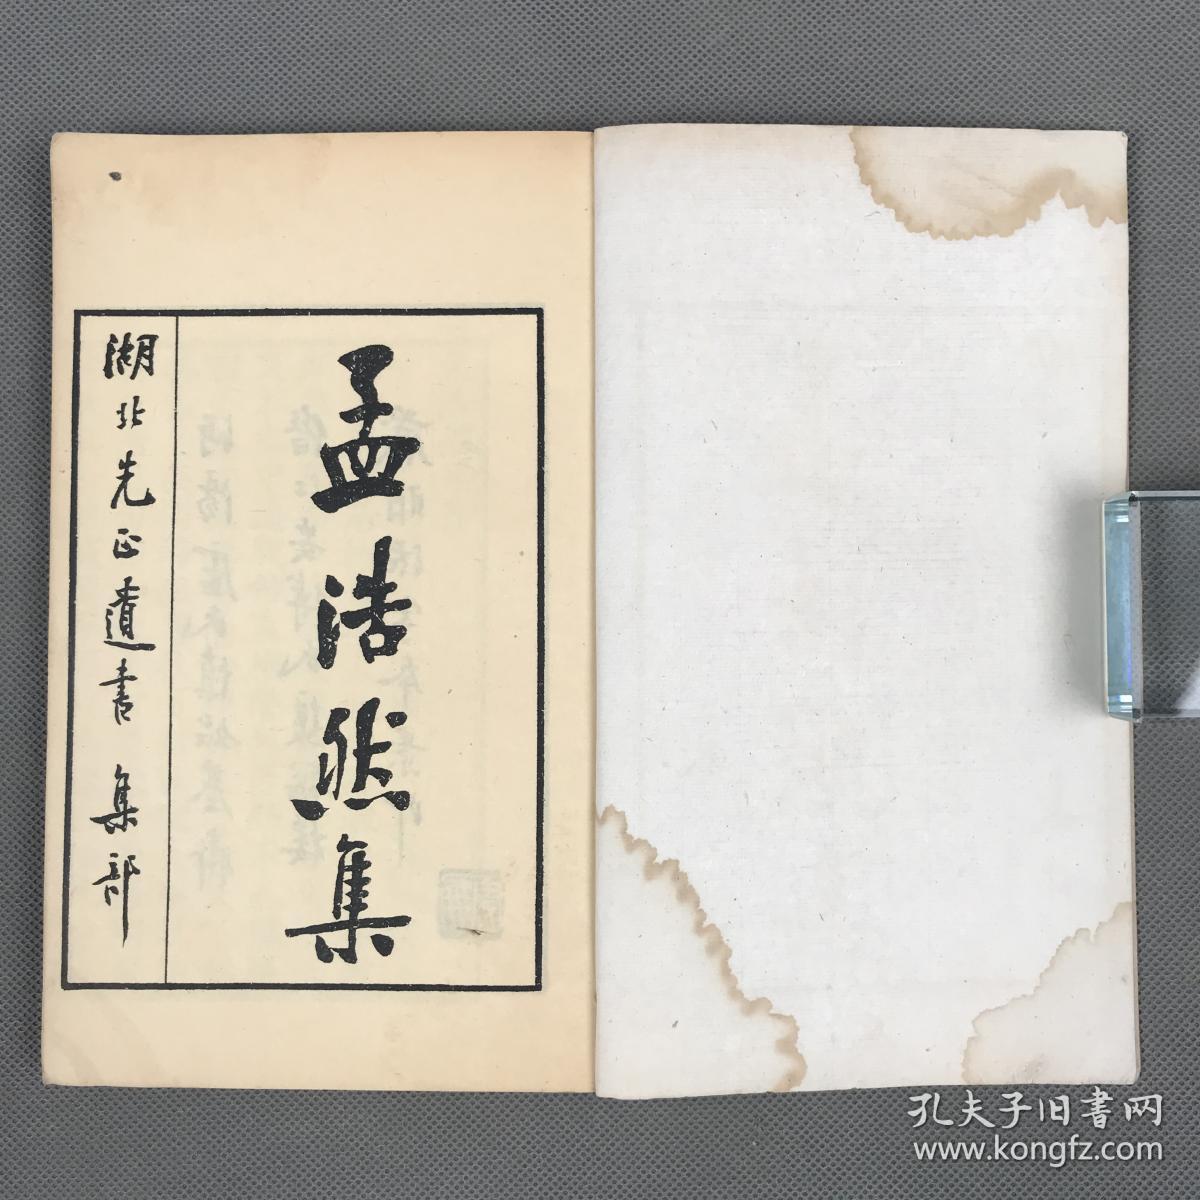 孟浩然集
湖北先正遺書 集部
孔夫子旧書网
www.kongfz.com